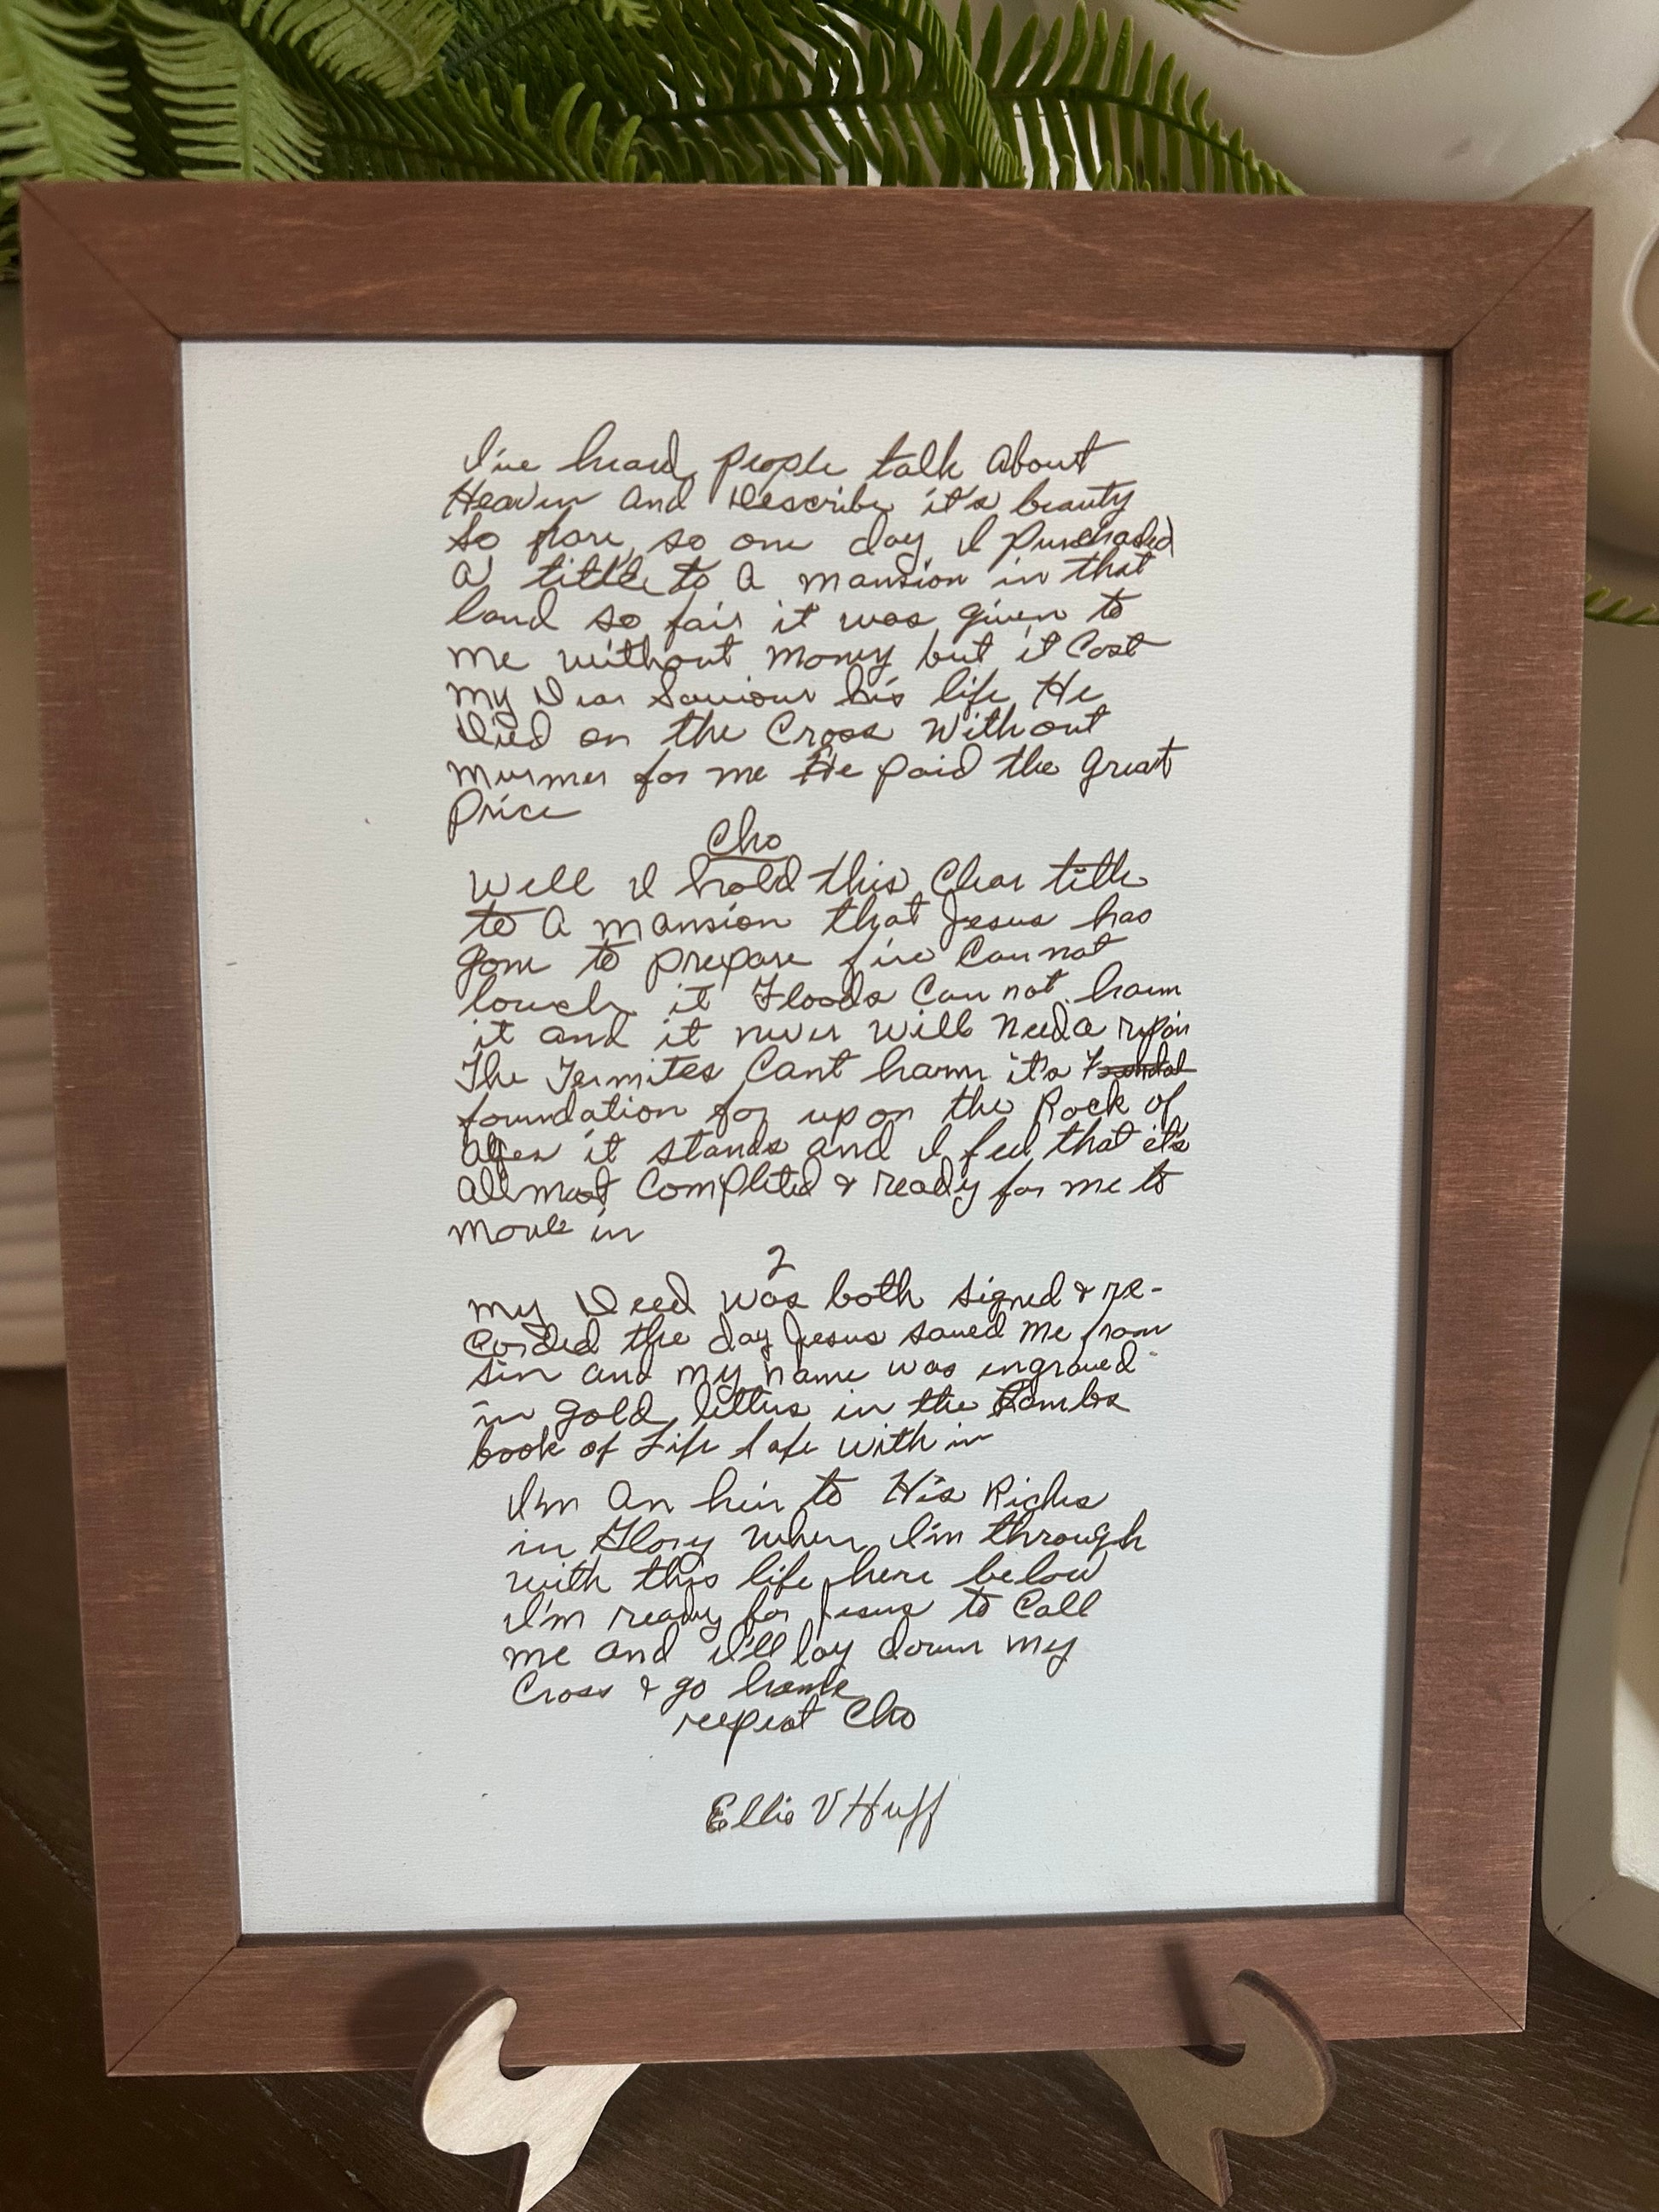 I've heard people talk about
Heaven and Describe it's beauty
So rare, so one day I purchased
a title to a mansion in that
land so fair it was given to
me without money but it Cost
my Dear Saviour his life He
Died on the Cross Without
murmer for me He paid the great
Price
Cho
Well I hold this Clear title
to A mansion that Jesus has
gone to prepare fire Can not
touch it Floods Can not harm
it and it never will need a repair
The Termites Cant harm it's
foundation for upon the Rock of
Ages it stands and I feel that it's
Allmost Completed & ready for me to
move in
2
my Deed was both signed & re-
corded the day Jesus saved me from
sin and my name was engraved
in gold letters in the Lambs
book of Life safe with in
I'm an heir to His Riches
in Glory when I'm through
with this life here below
I'm ready for Jesus to Call
me and I'll lay down my
Cross & go home
repeat Cho
Ellis V Huff